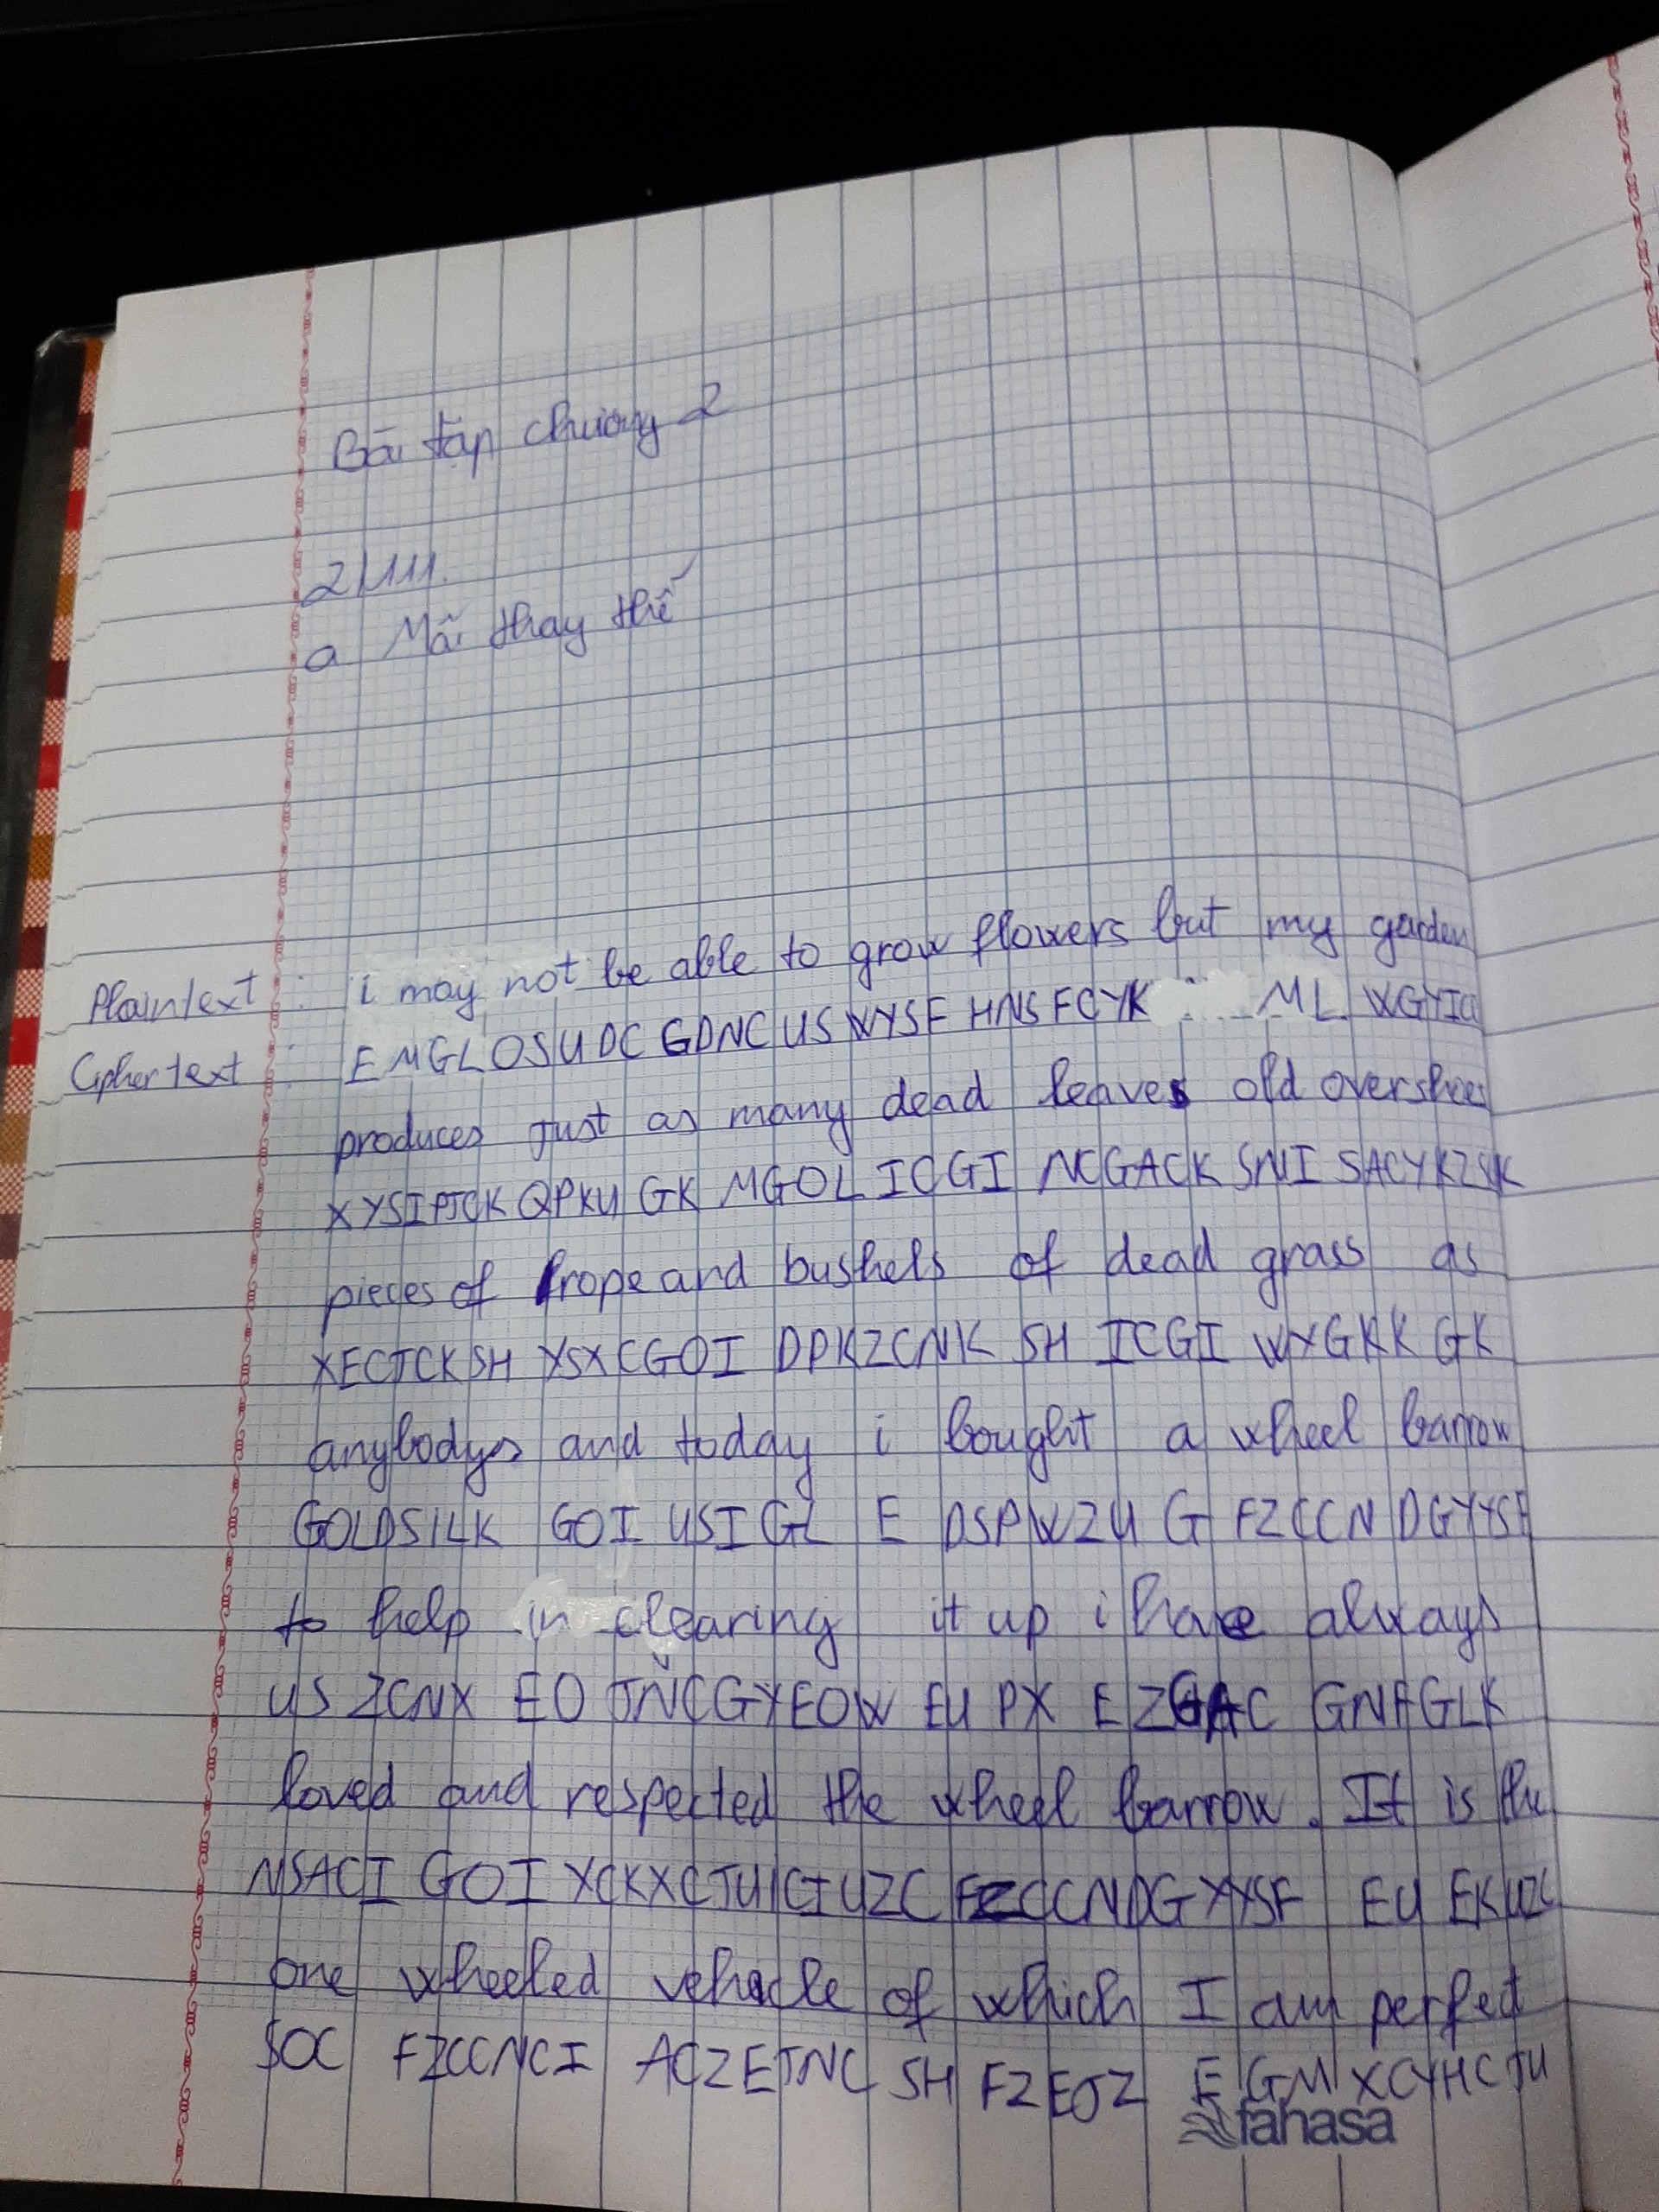 Bài tập chương 2
2/111.
a Mã thay thế
Plaintext : i may not be able to grow flowers but my garden
Ciphertext : EMGLOSUDC GDNC US WYSF HNSFCYK ML WGYIC
produces just as many dead leaves old overshoes
XYSIPJCK QPKU GK MGOL ICGI NCGACK SNI SACYKZSK
pieces of rope and bushels of dead grass as
XECJCKSH YSXCGOI DPKZCNK SH ICGI WYGKK GK
anybodys and today i bought a wheel barrow
GOLDSILK GOI USIGL E DSPWZU G FZCCN DGYYSF
to help in clearing it up i have always
US ZCNX EO JNCGYEOW EU PX E ZGAC GNFGLK
loved and respected the wheel barrow. It is the
NSACI GOI YCKXCJUCI UZC FZCCNDGYYSF EU EKUZC
one wheeled vehicle of which I am perfect
SOC FZCCNCI ACZEJNC SH FZEJZ E GM XCYHCJU
fahasa